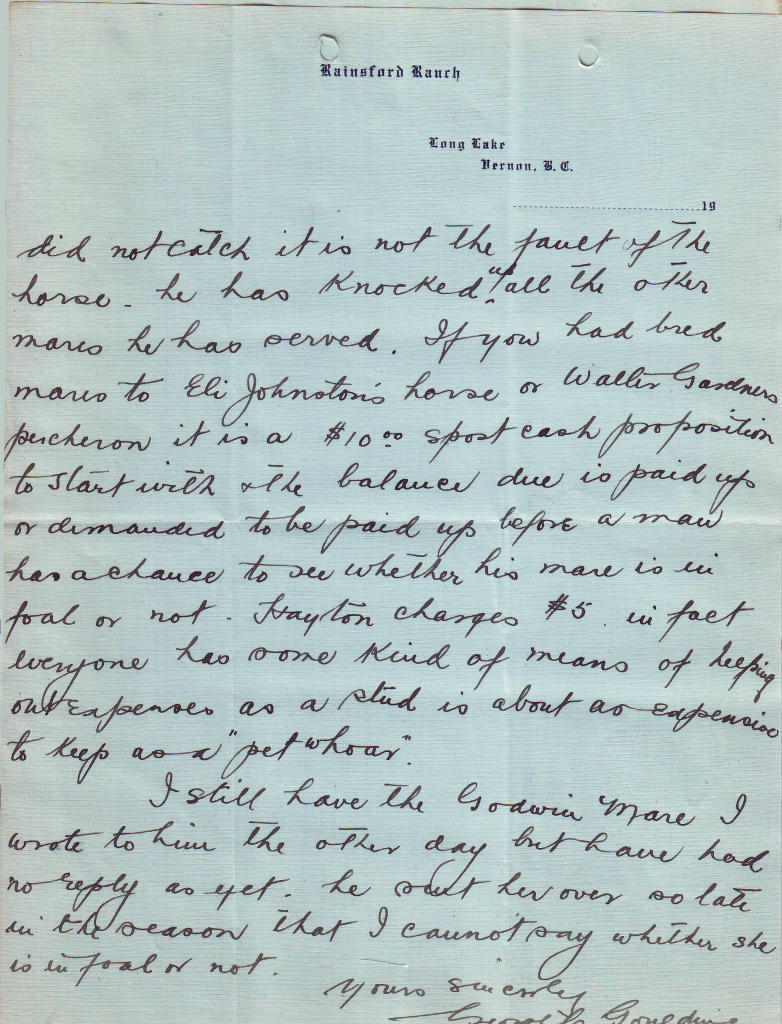 Rainsford Ranch
Long Lake
Vernon, B.C.
19
did not catch it is not the fault of the
horse - he has Knocked "up" all the other
mares he has served. If you had bred
mares to Eli Johnston's horse or Walter Gardners
percheron it is a $10.00 spot cash proposition
to start with & the balance due is paid up
or demanded to be paid up before a man
has a chance to see whether his mare is in
foal or not - Hayton charges $5. in fact
everyone has some kind of means of helping
out expenses as a stud is about as expensive
to keep as a "pet whoar".
I still have the Godwin Mare I
wrote to him the other day but have had
no reply as yet. he sent her over so late
in the season that I cannot say whether she
is in foal or not.
Yours sincerely
Goulding